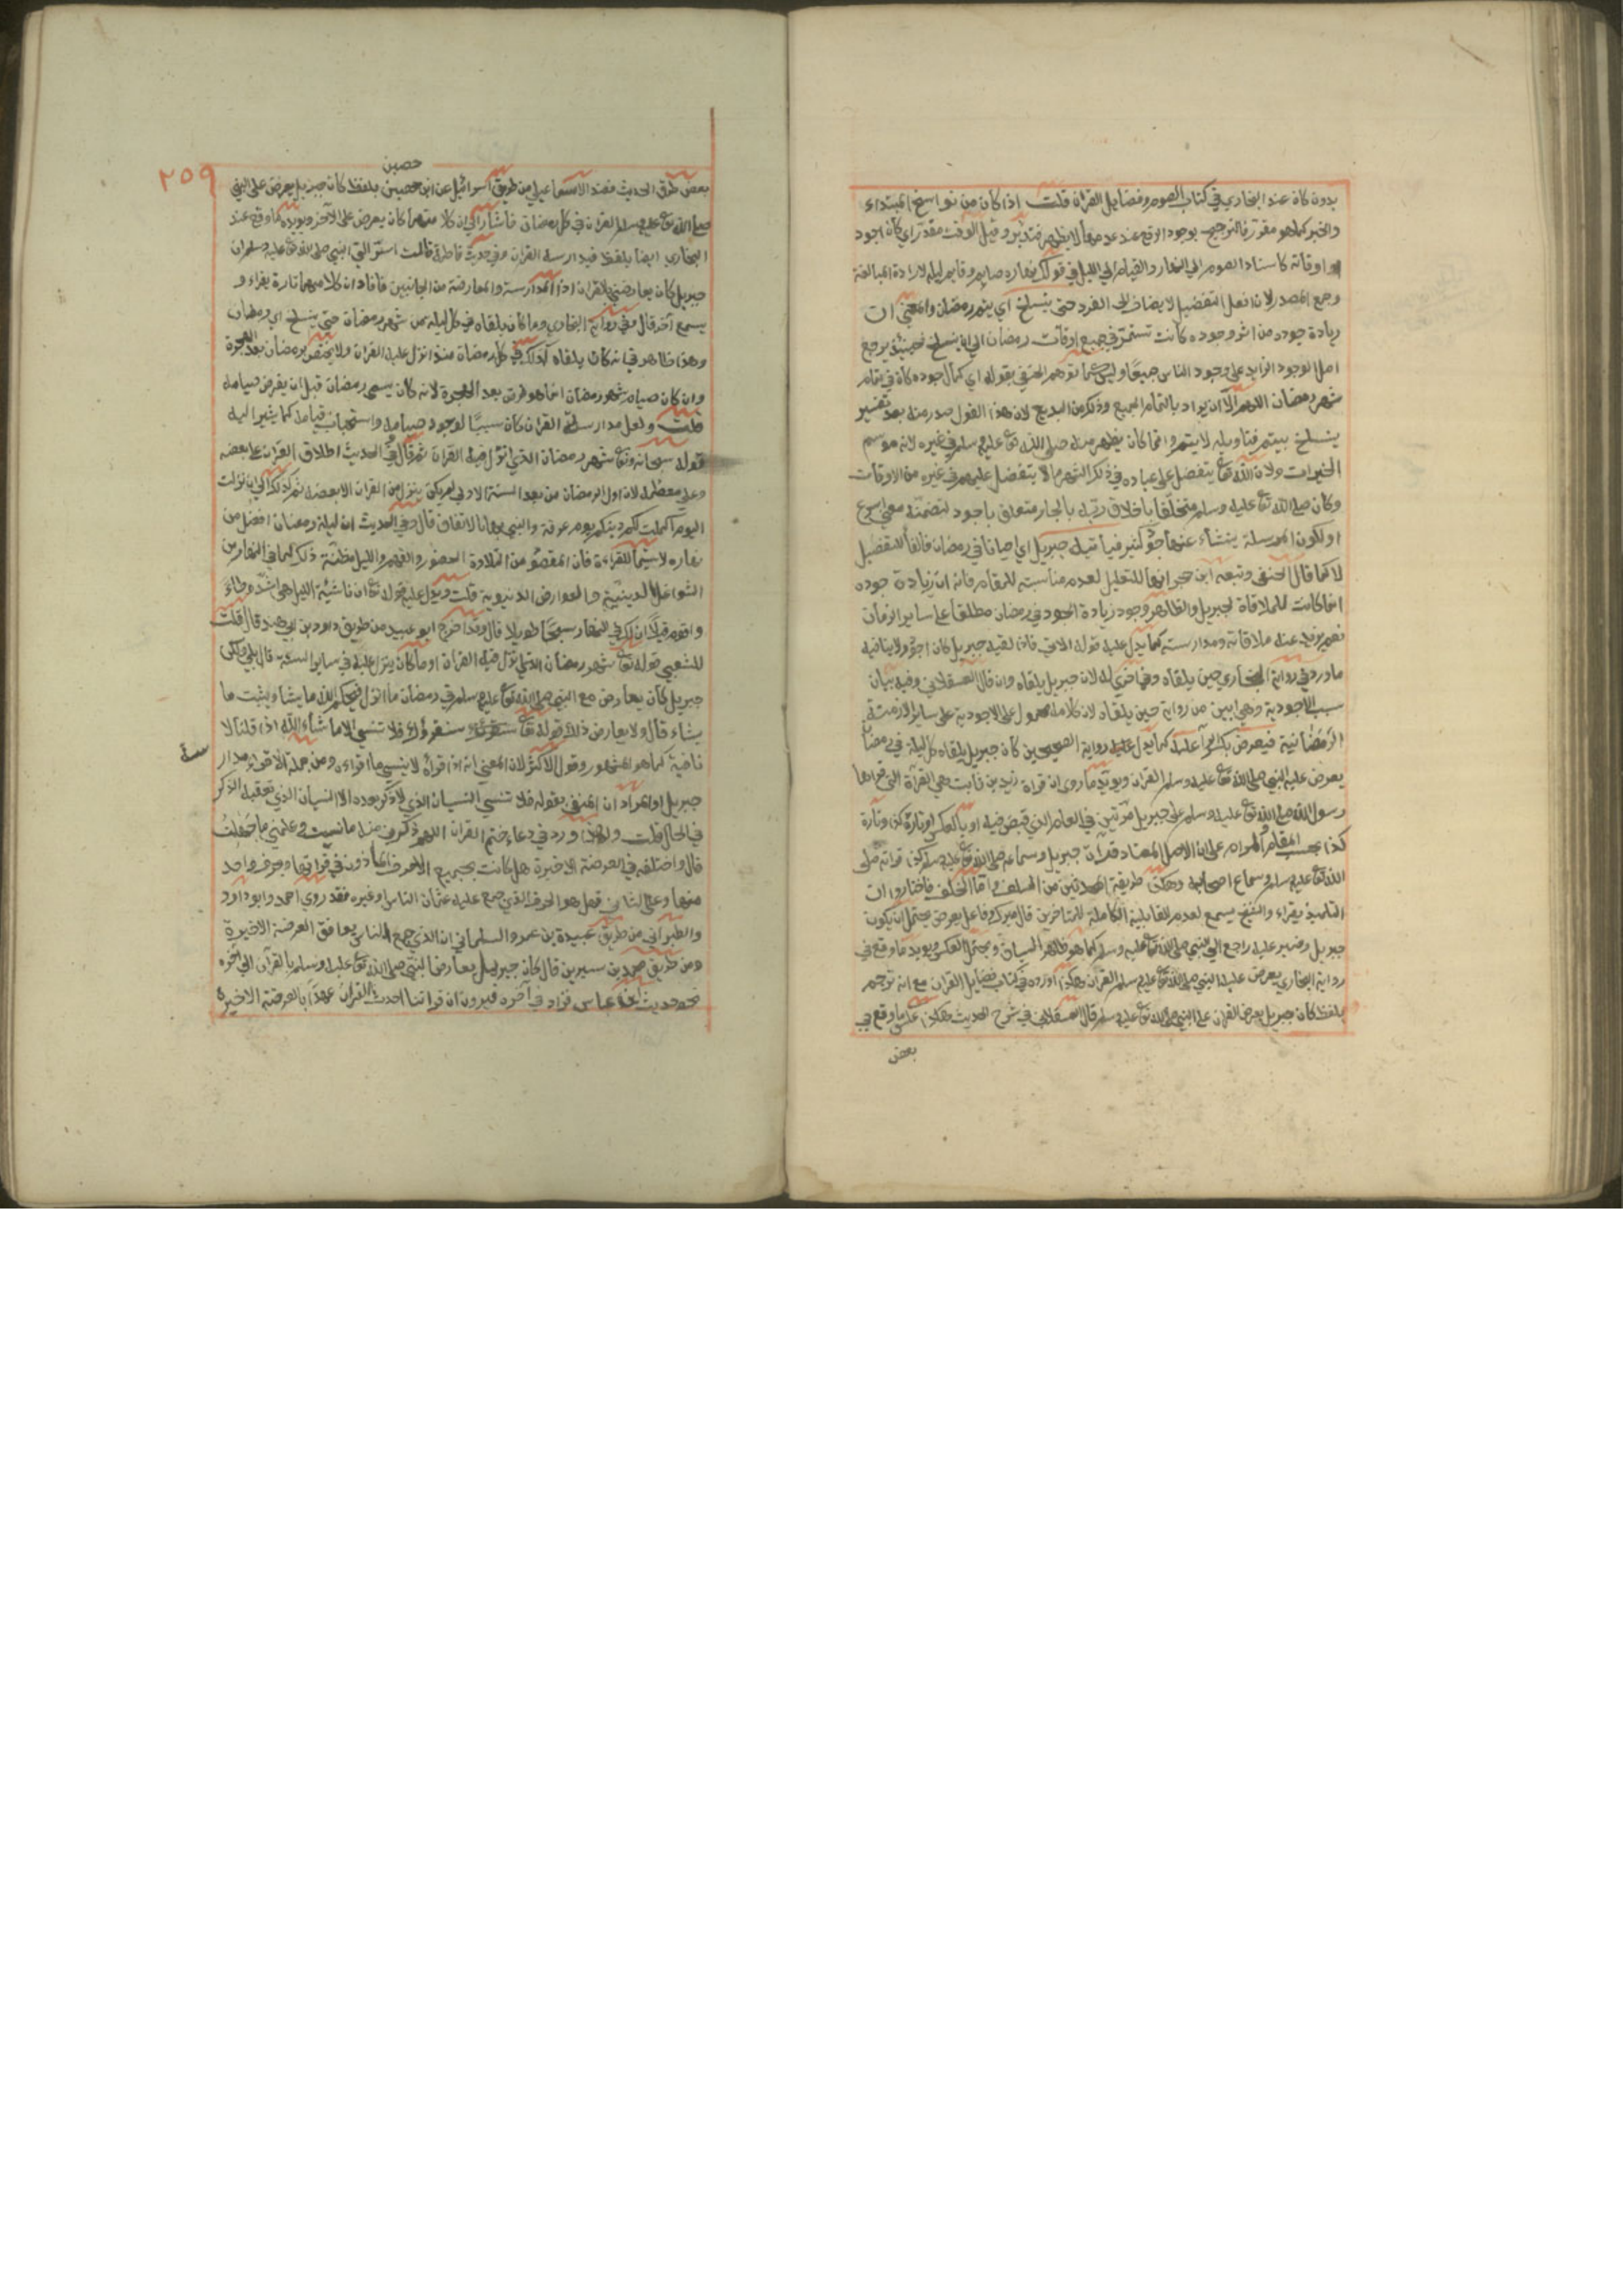 بدون كان عند البخاري في كتاب الصوم وفضايل القران قلت اذا كان من نواسخ المبتداء
والخبر كما هو مقرر فالتوجيه بوجود الرفع عند عدمها لا يظهر فتدبر وقيل الوقت مقدر اي كان اجود
اوقاته كاسناد الصوم الي النهار والقيام الي الليل في قولك نهاره صايم وقايم ليله لارادة المبالغة
وجمع المصدر لان افعل التفضيل لا يضاف الي المفرد حتى ينسلخ اي يتم رمضان والمعني ان
زيادة جوده من اثر وجوده كانت تستمر في جميع اوقات رمضان الي ان ينسلخ فحينئذ يرجع
اصل الوجود الزايد على وجود الناس جميعا وليس كما توهم الحنفي بقوله اي كمال جوده كان في تمام
شهر رمضان اللهم الا ان يراد بالتمام الجميع وذكر من البديع لان هذا القول صدر منه بعد تفسير
ينسلخ بيتم فتاويله لا يتم وانما كان يظهر منه صلى الله تع عليه وسلم في غيره لانه موسم
الخيرات ولان الله تعا يتفضل على عباده في ذكر الشهر ما لا يتفضل عليهم في غيره من الاوقات
وكان صلي الله تع عليه وسلم متخلقا باخلاق ربه بالجار متعلق باجود لتضمنه معني اسرع
او لكون المرسلة ينشاء عنها جود كثير فياتيه جبريل اي احيانا في رمضان فالفا للتفصيل
لا كما قال الحنفي وتبعه ابن حجر انها للتعليل لعدم مناسبته للمقام فانه ان زيادة جوده
انما كانت لملاقاة جبريل والظاهر وجود زيادة الجود في رمضان مطلقا على ساير الزمان
نعم يزيد عند ملاقاته ومدارسته كما يدل عليه قوله الاتي فاذا لقيه جبريل كان اجود ولا ينافيه
ما ورد في رواية البخاري حين يلقاه وفي اخري له لان جبريل يلقاه وان قال العسقلاني وفيه بيان
سبب الاجودية وهي ابين من رواية حين يلقاه لان كلامه محمول على الاجودية على ساير الازمنة
الرمضانية فيعرض بكسر الراء عليه كما يدل عليه رواية الصحيحين كان جبريل يلقاه كل ليلة في رمضان
يعرض عليه النبي صلى الله تعا عليه وسلم القران ويويد ما روي ان قراة زيد بن ثابت هي القراة التي قراها
رسول الله صلي الله تع عليه وسلم على جبريل مرتين في العام الذي قبض فيه او بالعكس او تارة كذا وتارة
كذا بحسب المقام والمراد على ان الاصل المعتاد قران جبريل وسماعه صلى الله تع عليه وسلم وكذا قراته صلى
الله تعا عليه وسلم وسماع اصحابه وهكذا طريقة المحدثين من السلف واما الخلف فاختاروا ان
التلميذ يقراء والشيخ يسمع لعدم القابلية الكاملة للمتاخرين قال ميرك وفاعل يعرض يحتمل ان يكون
جبريل وضمير عليه راجع الي النبي صلى الله تعا عليه وسلم كما هو ظاهر السياق ويحتمل العكس ويويد ما وقع في
رواية البخاري يعرض عليه النبي صلى الله تع عليه وسلم القران وهكذا اورده في كتاب فضايل القران مع انه ترجم
بلفظ كان جبريل يعرض القران على النبي صلى الله تع عليه وسلم قال العسقلاني في شرح الحديث وهكذا عكس ما وقع في
بعض
٢٥٩
حصين
بعض طرق الحديث فعند الاسماعيلي من طريق اسرائيل عن ابن حصين بلفظ كان جبريل يعرض على النبي
صلى الله تع عليه وسلم القران في كل رمضان فاشار الي ان كلا منهما كان يعرض على الآخر ويويده ما وقع عند
البخاري ايضا بلفظ فيدارسه القران وفي حديث فاطمة قالت اسر الي النبي صلى الله تع عليه وسلم ان
جبريل كان يعارضني بالقران اذ المدارسة والمعارضة من الجانبين فافاد ان كلا منهما تارة يقراء و
يسمع آخر قال وفي رواية البخاري وما كان يلقاه في كل ليلة من شهر رمضان حتى ينسلخ اي رمضان
وهذا ظاهر في انه كان يلقاه كذلك في كل رمضان منذ انزل عليه القران ولا يختص برمضان بعد الهجرة
وان كان صيام شهر رمضان انما هو فرض بعد الهجرة لانه كان يسمى رمضان قبل ان يفرض صيامه
قلت ولعل مدارسته القران كان سببا لوجود صيامه واستحباب قيامه كما يشير اليه
قوله سبحانه وتعا شهر رمضان الذي انزل فيه القران ثم قال وفي الحديث اطلاق القران على بعضه
وعلى معظمه لان اول رمضان من بعد السنة الاولي لم يكن ينزل من القران الا بعضه ثم كذلك الي ان نزلت
اليوم اكملت لكم دينكم يوم عرفة والنبي بها بالاتفاق قال وفي الحديث ان ليلة رمضان افضل من
نهاره لا سيما للقراءة فان المقصود من التلاوة الحضور والفهم والليل مظنة ذلك لما في النهار من
الشواغل الدينية والعوارض الدنيوية قلت ويدل عليه قوله تعا ان ناشئة الليل هي اشد وطاء
واقوم قيلا ان لك في النهار سبحا طويلا قال وقد اخرج ابو عبيد من طريق داود بن ابي هند قال قلت
للشعبي قوله تعا شهر رمضان الذي انزل فيه القران اوما كان ينزل عليه في ساير السنة قال بلي ولكن
جبريل كان يعارض مع النبي صلى الله تع عليه وسلم في رمضان ما انزل فيحكم الله ما يشا ويثبت ما
يشاء قال ولا يعارض ذلك قوله تعا سنقرئك فلا تنسى الا ما شاء الله اذا قلنا لا
نافية كما هو المشهور وقول الاكثر لان المعني انه اذا قراه لا ينسي ما اقراه ومن جملة الاقراء مدارسة
جبريل او المراد ان المنفي بقوله فلا تنسي النسيان الذي لا ذكر بعده لا النسيان الذي يعقبه الذكر
في الحال قلت ولهذا ورد في دعاء ختم القران اللهم ذكرني منه ما نسيت وعلمني ما جهلت
قال واختلف في العرضة الاخيرة هل كانت بجميع الاحرف الماذون في قراتها او بحرف واحد
منها وعلى الثاني فهل هو الحرف الذي جمع عليه عثمان الناس او غيره فقد روي احمد وابو داود
والطبراني من طريق عبيدة بن عمرو السلماني ان الذي جمع الناس يوافق العرضة الاخيرة
ومن طريق محمد بن سيرين قال كان جبريل يعارض النبي صلى الله تع عليه وسلم بالقران الي آخره
نحو حديث ابن عباس فزاد في آخره فيرون ان قراتنا احدث القران عهدا بالعرضة الاخيرة